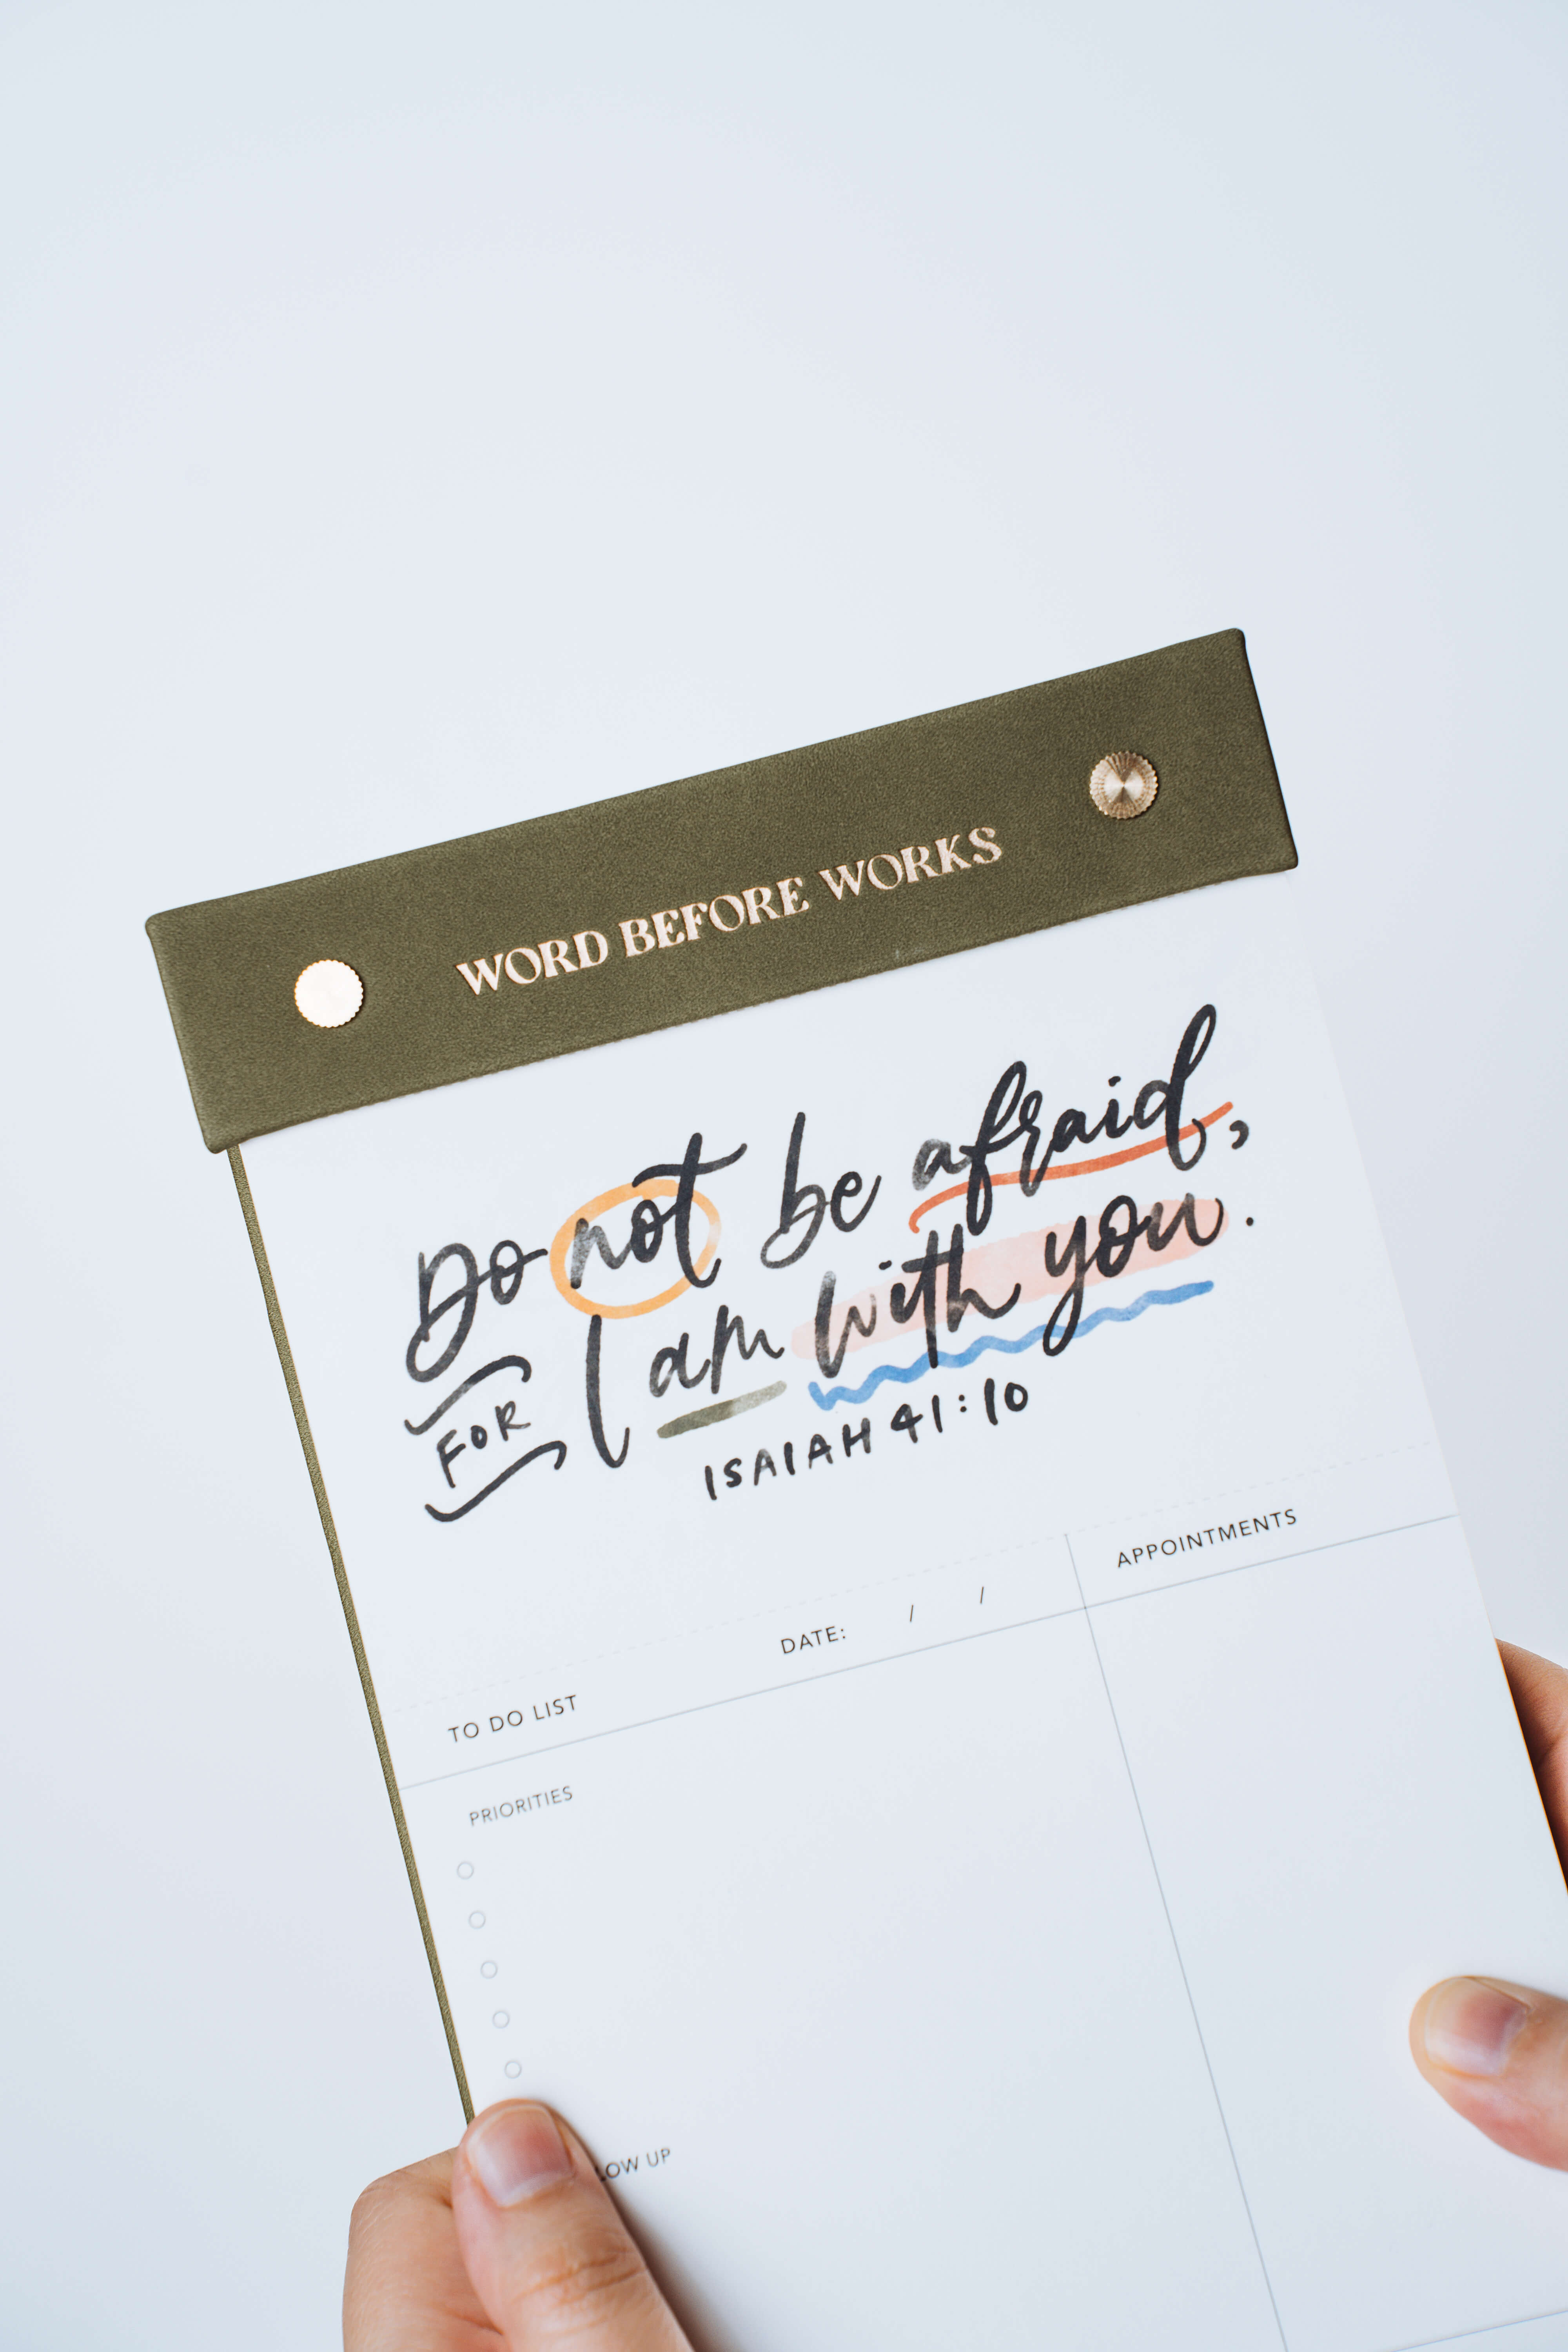 WORD BEFORE WORKS
Do not be afraid,
FOR I am with you.
ISAIAH 41:10
TO DO LIST DATE: / / APPOINTMENTS
PRIORITIES
LOW UP